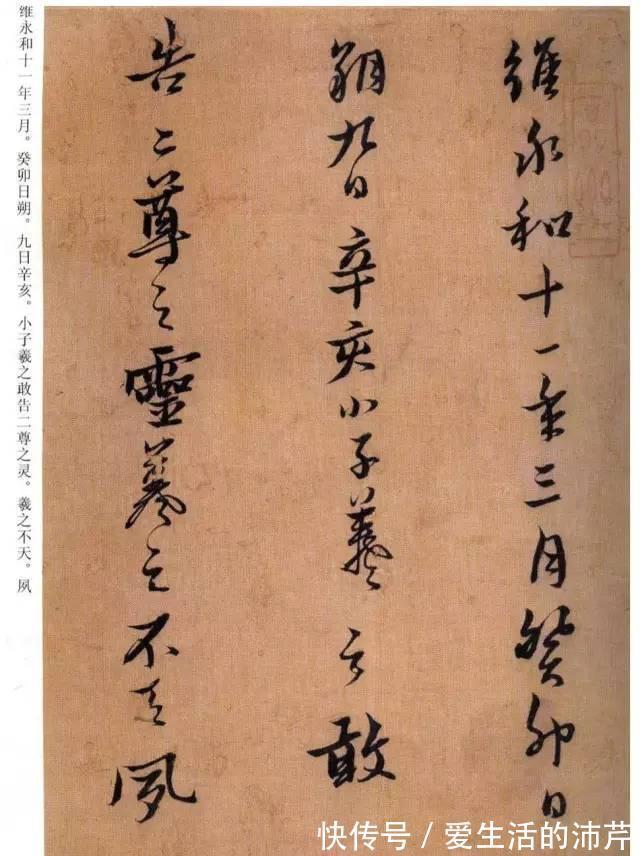 維永和十一年三月癸卯日
朔九日辛亥小子羲之敢
告二尊之靈羲之不天夙
维永和十一年三月。癸卯日朔。九日辛亥。小子羲之敢告二尊之灵。羲之不天。夙
快传号 / 爱生活的沛芹